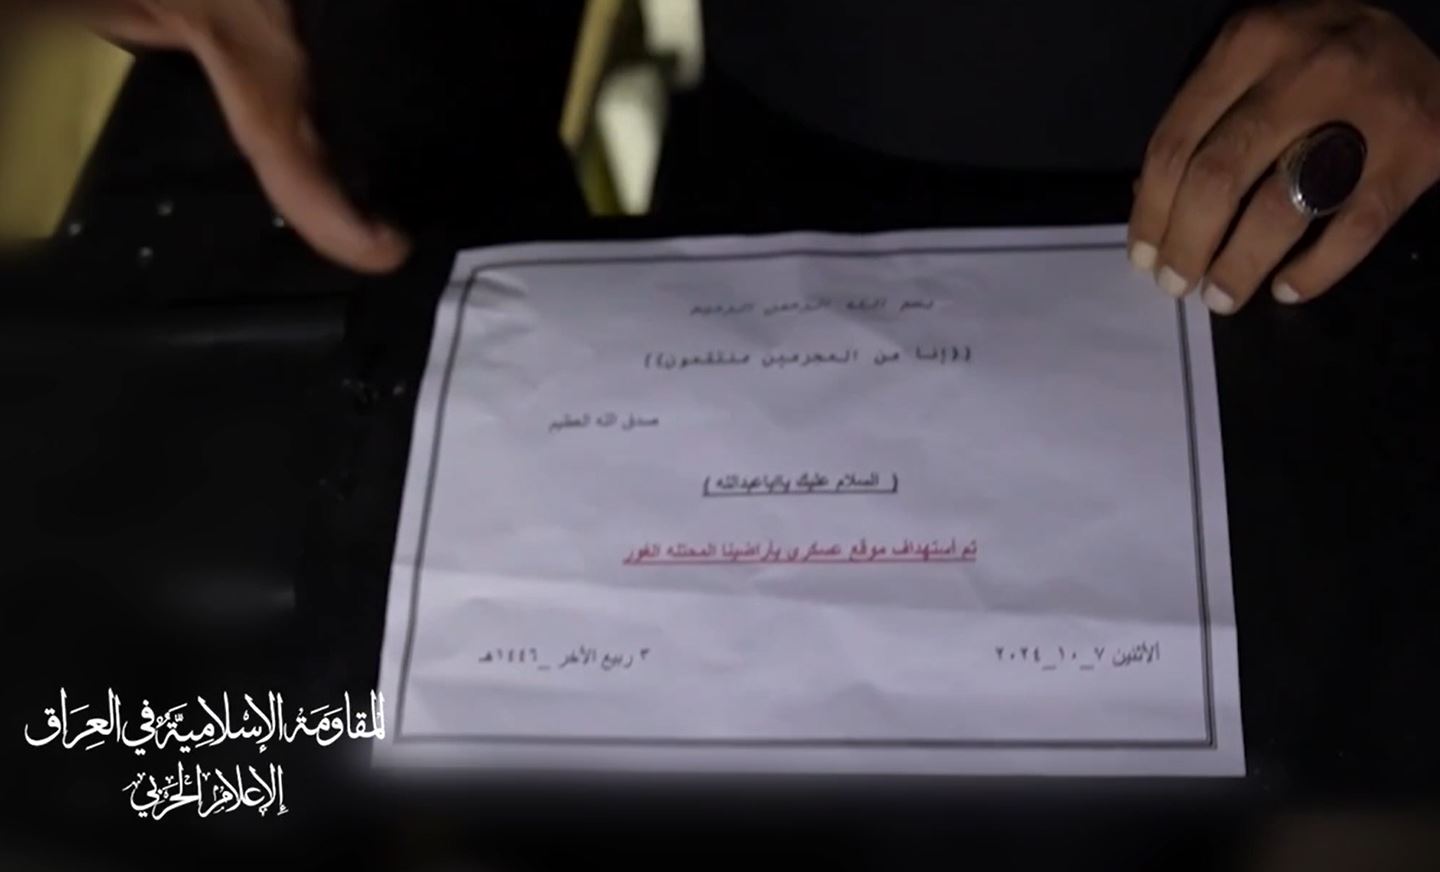 بسم الله الرحمن الرحيم
((إنا من المجرمين منتقمون))
صدق الله العظيم
( السلام عليك ياابا عبدالله )
تم أستهداف موقع عسكري بأراضينا المحتله الغور
الأثنين ٧_١٠_٢٠٢٤
٣ ربيع الأخر _١٤٤٦هـ
المقاومة الإسلامية في العراق
الإعلام الحربي